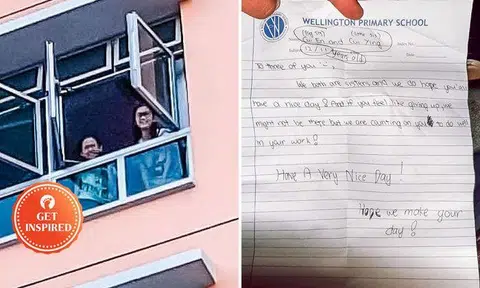 GET
INSPIRED
WELLINGTON PRIMARY SCHOOL
(big sis)
Xin and Xing
To three of you
We both are sisters and we do hope you
have a nice day! And if you feel like giving up, we
might not be there but we are counting on you to do well
in your work!
Have A Very Nice Day!
Hope we make your
day!